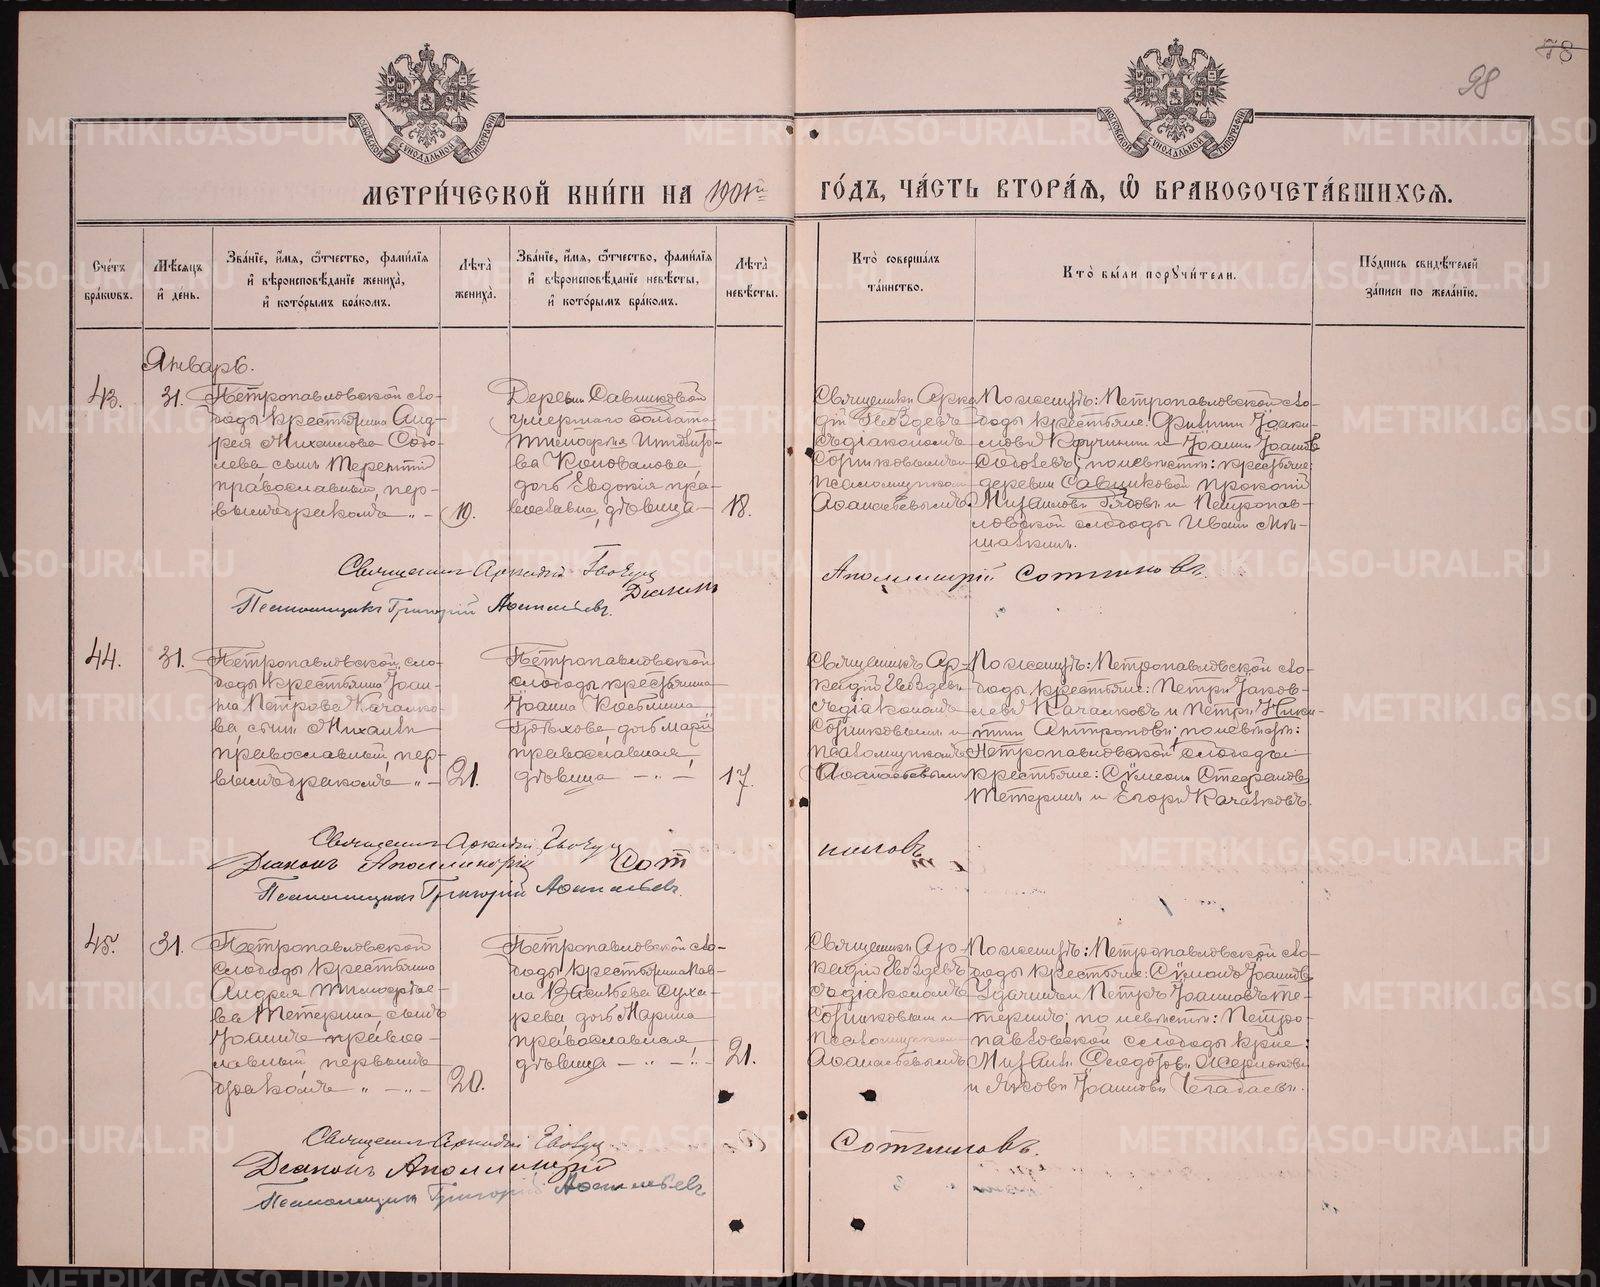 78
98
МОСКОВСКОЙ СѴНОДАЛЬНОЙ ТИПОГРАФІИ
МОСКОВСКОЙ СѴНОДАЛЬНОЙ ТИПОГРАФІИ
МЕТРИ́ЧЕСКОЙ КНИ́ГИ НА 1901й ГО́ДЪ, ЧА́СТЬ ВТОРА́Я, Ѿ БРАКОСОЧЕТА́ВШИХСЯ.
Сче́тъ бра́кωвъ.
Мѣ́сяцъ и де́нь.
Зва́нїе, и́мя, ѻ́тчество, фами́лїя и вѣроисповѣ́данїе жениха̀, и кото́рымъ бра́комъ.
Лѣта̀ жениха̀.
Зва́нїе, и́мя, ѻ́тчество, фами́лїя и вѣроисповѣ́данїе невѣ́сты, и кото́рымъ бра́комъ.
Лѣта̀ невѣ́сты.
Кто̀ соверша́лъ та́инство.
Кто̀ бы́ли поручи́тели.
По́дпись свидѣ́телей за́писи по жела́нїю.
Январь.
43.
31.
Петропавловской сло-
боды крестьянина Анд-
рея Михаилова Собо-
лева сынъ Терентій
православный, пер-
вымъ бракомъ
19.
Деревни Савинковой
умершаго солдата
Тимофея
ва Коновалова
дочь Евдокія пра-
вославная, дѣвица
18.
Священникъ Арка-
дій Гвоздевъ
съ діакономъ
Сотниковымъ и
псаломщикомъ
Аѳанасьевымъ
По женихѣ: Петропавловской сло-
боды крестьяне: Филиппъ
и Іоаннъ Іоанновъ
по невѣстѣ: крестьяне
деревни Савинковой Прокопій
Михаиловъ и Петропав-
ловской слободы Иванъ
Священникъ Аркадій Гвоздевъ
Діаконъ Аполлинарій Сотниковъ.
Псаломщикъ Григорій Аѳанасьевъ.
44.
31.
Петропавловской сло-
боды крестьянина Іоан-
на Петрова Качалко-
ва, сынъ Михаилъ
православный, пер-
вымъ бракомъ
21.
Петропавловской
слободы крестьянина
Іоанна Косьмина
дочь Марія
православная,
дѣвица
17.
Священникъ Ар-
кадій Гвоздевъ
съ діакономъ
Сотниковымъ и
псаломщикомъ
Аѳанасьевымъ
По женихѣ: Петропавловской сло-
боды крестьяне: Петръ Іаков-
левъ Качалковъ и Петръ Ники-
тинъ Антроповъ; по невѣстѣ:
Петропавловской слободы
крестьяне: Сѵмеонъ Стефановъ
Тетеринъ и Егоръ Качалковъ.
Священникъ Аркадій Гвоздевъ
Діаконъ Аполлинарій Сотниковъ
Псаломщикъ Григорій Аѳанасьевъ.
45.
31.
Петропавловской
слободы крестьянина
Андрея Тимофѣе-
ва Тетерина сынъ
Іоаннъ правос-
лавный, первымъ
бракомъ
20.
Петропавловской сло-
боды крестьянина Пав-
ла Васильева Суха-
рева дочь Марина
православная,
дѣвица
21.
Священникъ Ар-
кадій Гвоздевъ
съ діакономъ
Сотниковымъ и
псаломщикомъ
Аѳанасьевымъ
По женихѣ: Петропавловской сло-
боды крестьяне: Сѵмеонъ Іоанновъ
и Петръ Іоанновъ Те-
теринъ; по невѣстѣ: Петро-
павловской слободы крне:
Михаилъ Ѳеодоровъ
и Яковъ Іоанновъ
Священникъ Аркадій Гвоздевъ
Діаконъ Аполлинарій Сотниковъ.
Псаломщикъ Григорій Аѳанасьевъ
METRIKI.GASO-URAL.RU